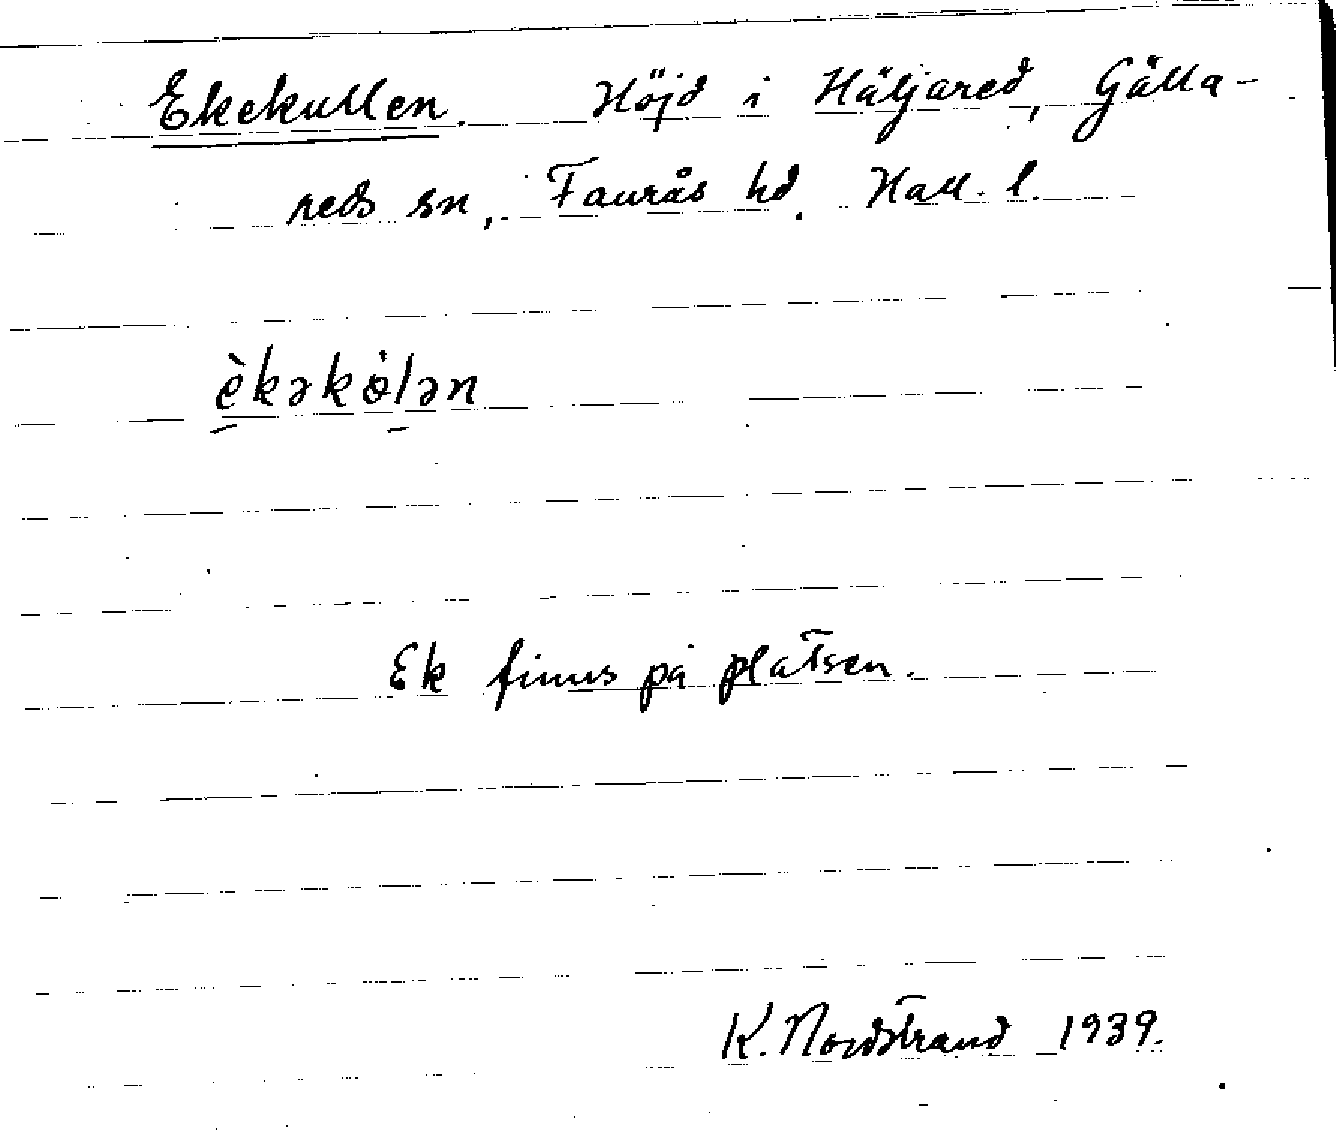 Ekekullen. Höjd i Häljared, Gälla-
reds sn, Faurås hd. Hall. l.
èkəkɵ̇lən
Ek finns på platsen.
K. Nordstrand 1939.